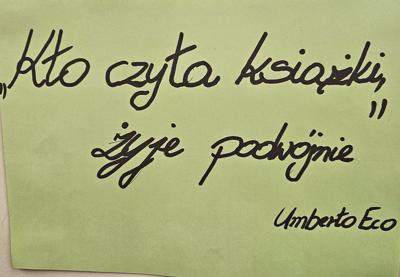 „Kto czyta książki,
żyje podwójnie”
Umberto Eco